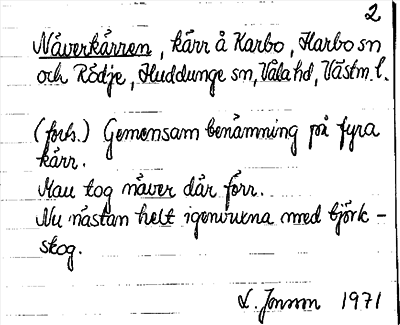 2
Nåverkärren, kärr å Karbo, Harbo sn
och Rödje, Huddunge sn, Våla hd, Västm. l.
(forts.) Gemensam benämning på fyra
kärr.
Man tog näver där förr.
Nu nästan helt igenvuxna med björk-
skog.
L. Jonsson 1971